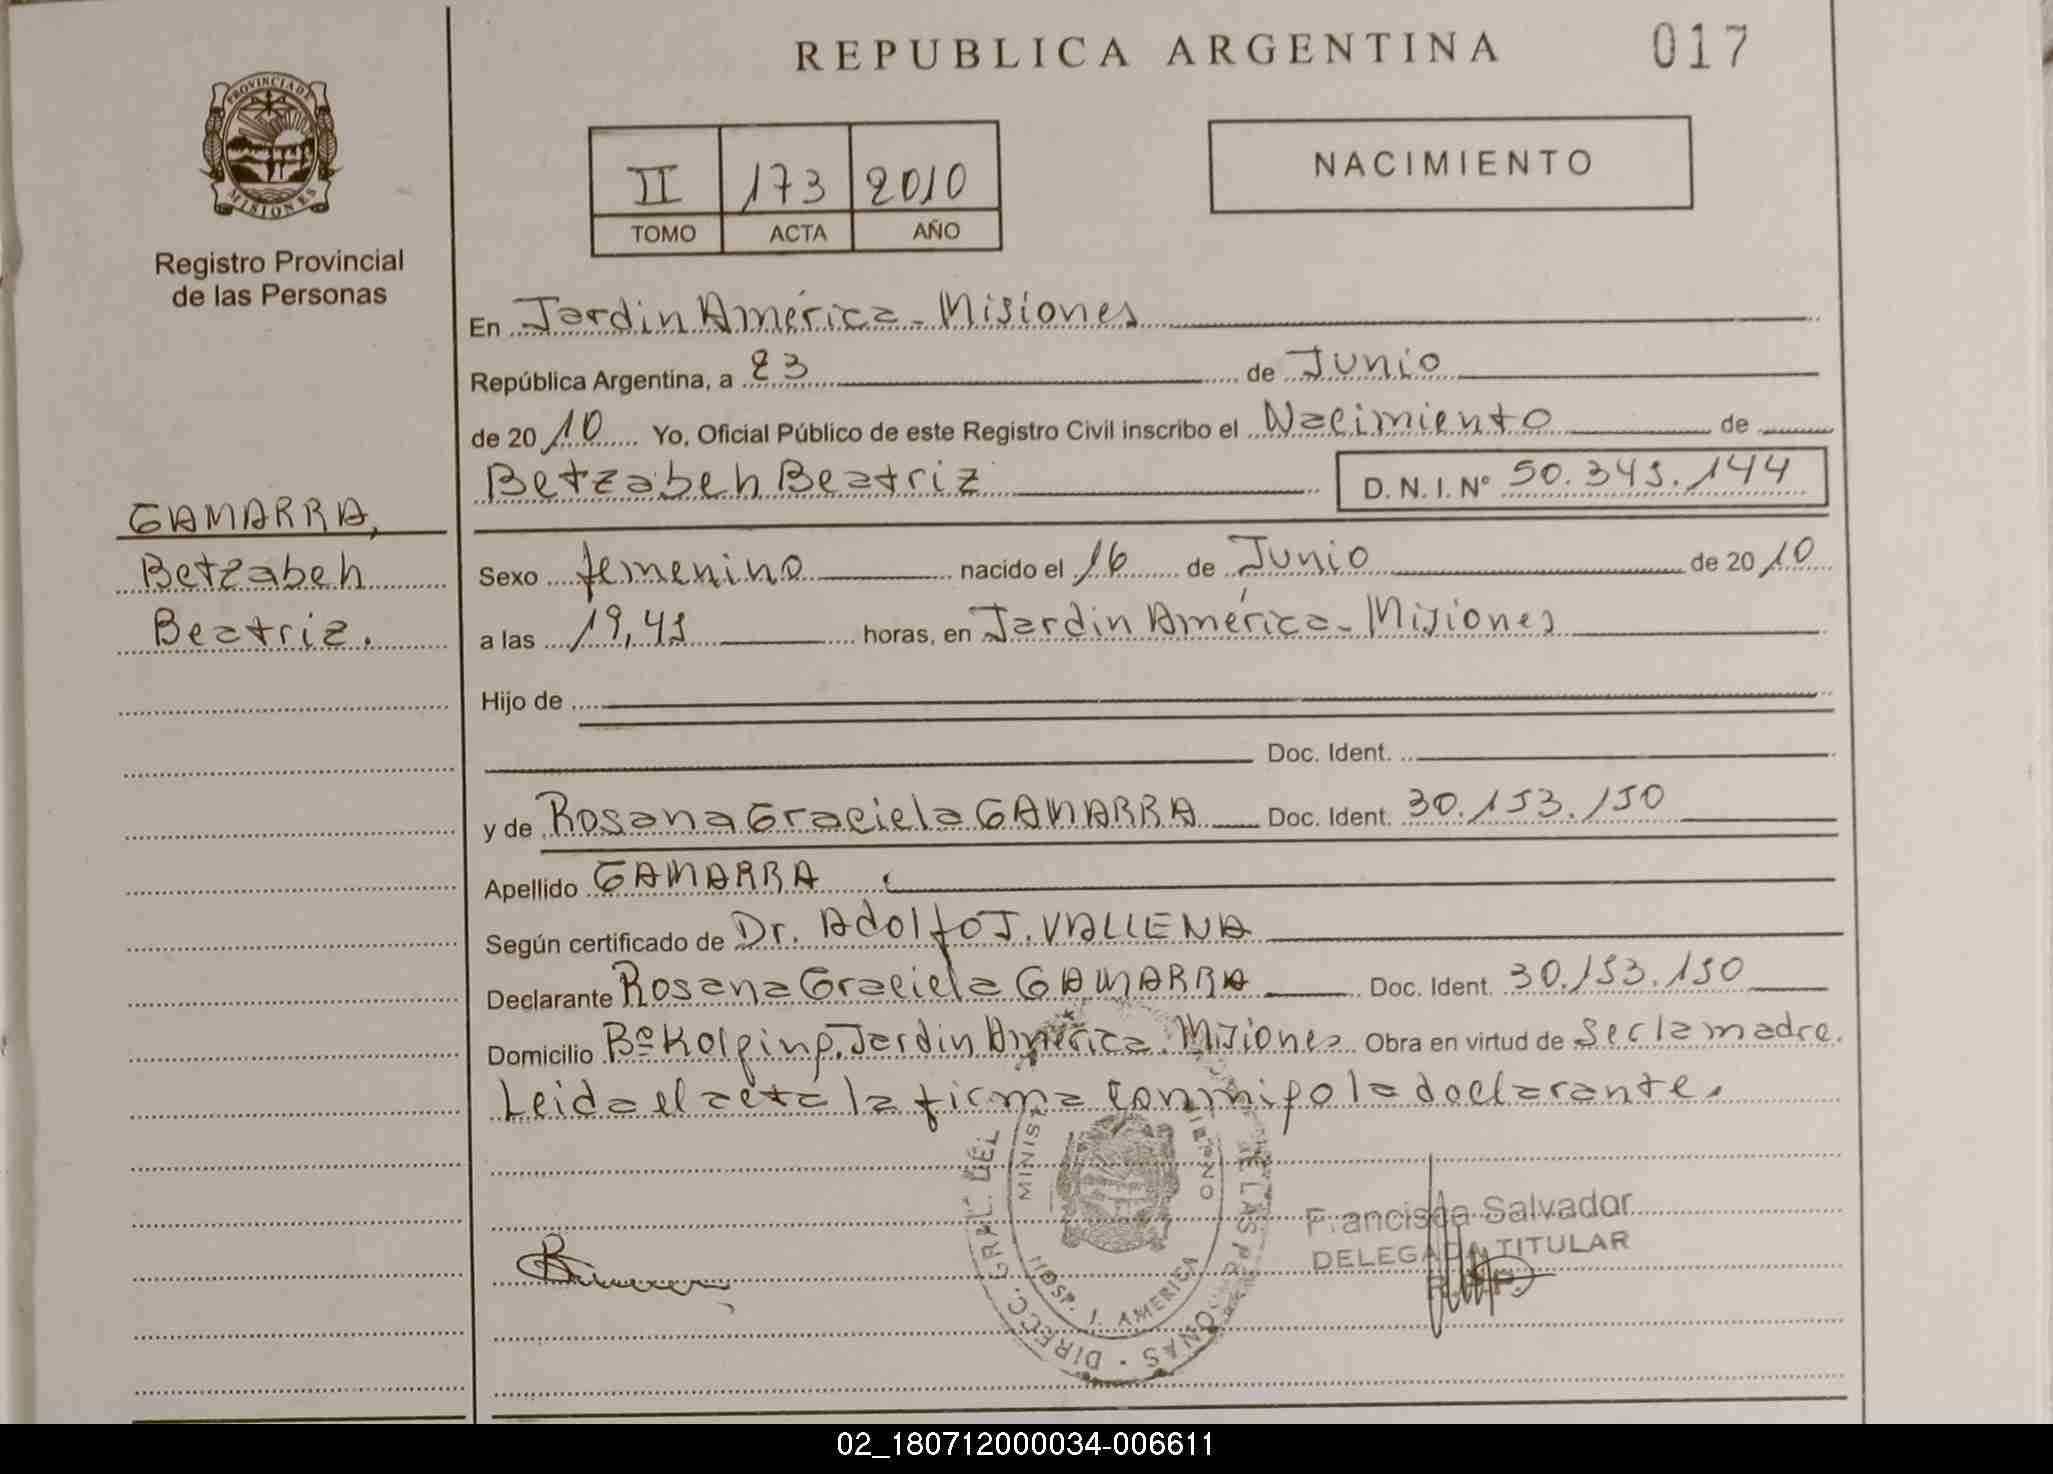 REPUBLICA ARGENTINA
017
PROVINCIA DE
MISIONES
Registro Provincial
de las Personas
II 173 2010
TOMO ACTA AÑO
NACIMIENTO
En Jardin América - Misiones
República Argentina, a 23 de Junio
de 2010 Yo, Oficial Público de este Registro Civil inscribo el Nacimiento de
Betzabeh Beatriz D. N. I. Nº 50.345.144
GAMARRA,
Betzabeh
Beatriz.
Sexo femenino nacido el 16 de Junio de 2010
a las 19,45 horas, en Jardin América - Misiones
Hijo de
Doc. Ident.
y de Rosana Graciela GAMARRA Doc. Ident. 30.153.150
Apellido GAMARRA
Según certificado de Dr. Adolfo J. VALLENA
Declarante Rosana Graciela GAMARRA Doc. Ident. 30.153.150
Domicilio Bº Kolping. Jardin América. Misiones Obra en virtud de Ser la madre.
Leida el acta la firma conmigo la declarante.
DIRECC. GRAL. DEL
HOSP. J. AMERICA
Francisca Salvador
DELEGADA TITULAR
R.P.P.
02_180712000034-006611